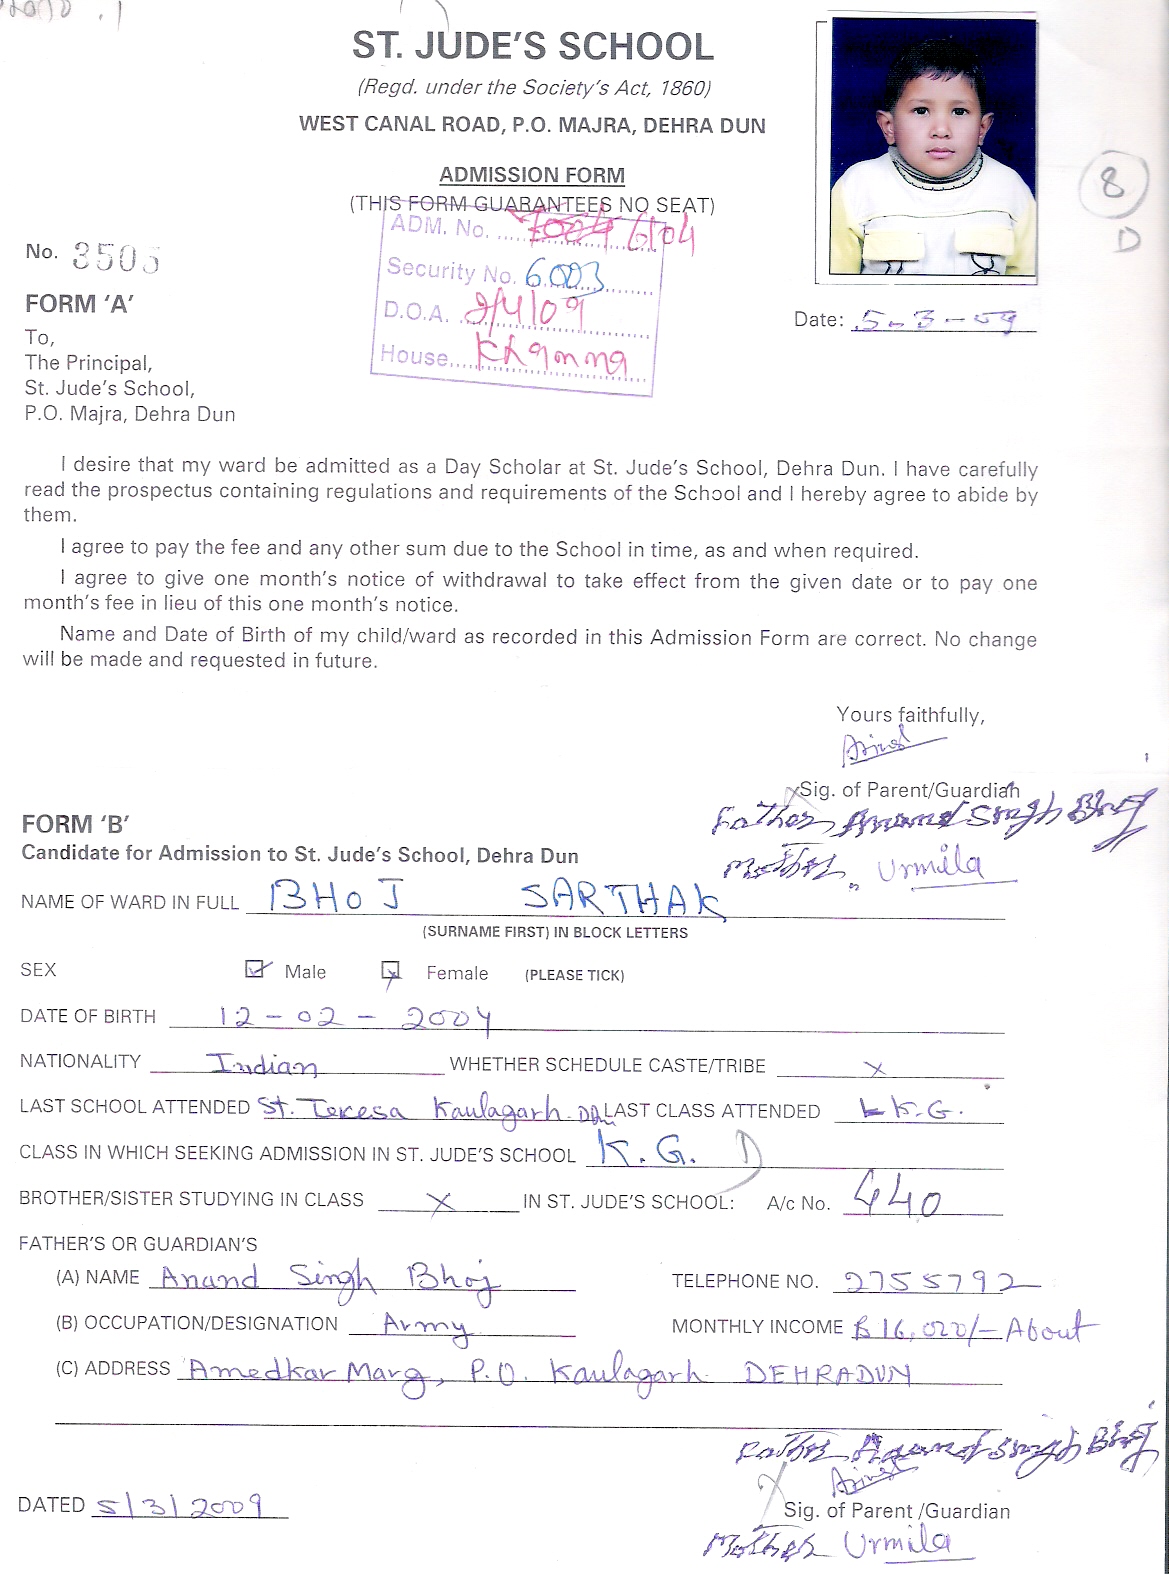 ST. JUDE'S SCHOOL
(Regd. under the Society's Act, 1860)
WEST CANAL ROAD, P.O. MAJRA, DEHRA DUN
ADMISSION FORM
(THIS FORM GUARANTEES NO SEAT)
8
D
ADM. No. ..... 6104
No. 3505
Security No. 6003
FORM 'A'
D.O.A. 2/4/09
Date: 5-3-09
To,
House... Khanna
The Principal,
St. Jude's School,
P.O. Majra, Dehra Dun
I desire that my ward be admitted as a Day Scholar at St. Jude's School, Dehra Dun. I have carefully
read the prospectus containing regulations and requirements of the School and I hereby agree to abide by
them.
I agree to pay the fee and any other sum due to the School in time, as and when required.
I agree to give one month's notice of withdrawal to take effect from the given date or to pay one
month's fee in lieu of this one month's notice.
Name and Date of Birth of my child/ward as recorded in this Admission Form are correct. No change
will be made and requested in future.
Yours faithfully,
Sig. of Parent/Guardian
Father Anand Singh Bhoj
FORM 'B'
Candidate for Admission to St. Jude's School, Dehra Dun
Mother Urmila
NAME OF WARD IN FULL BHOJ SARTHAK
(SURNAME FIRST) IN BLOCK LETTERS
SEX Male Female (PLEASE TICK)
DATE OF BIRTH 12-02-2004
NATIONALITY Indian WHETHER SCHEDULE CASTE/TRIBE x
LAST SCHOOL ATTENDED St. Teresa Kaulagarh LAST CLASS ATTENDED K.G.
CLASS IN WHICH SEEKING ADMISSION IN ST. JUDE'S SCHOOL K.G. D
BROTHER/SISTER STUDYING IN CLASS x IN ST. JUDE'S SCHOOL: A/c No. 440
FATHER'S OR GUARDIAN'S
(A) NAME Anand Singh Bhoj TELEPHONE NO. 2755792
(B) OCCUPATION/DESIGNATION Army MONTHLY INCOME 16,000/- About
(C) ADDRESS Amedkar Marg, P.O. Kaulagarh DEHRADUN
Father Anand Singh Bhoj
DATED 5/3/2009
Sig. of Parent /Guardian
Mother Urmila